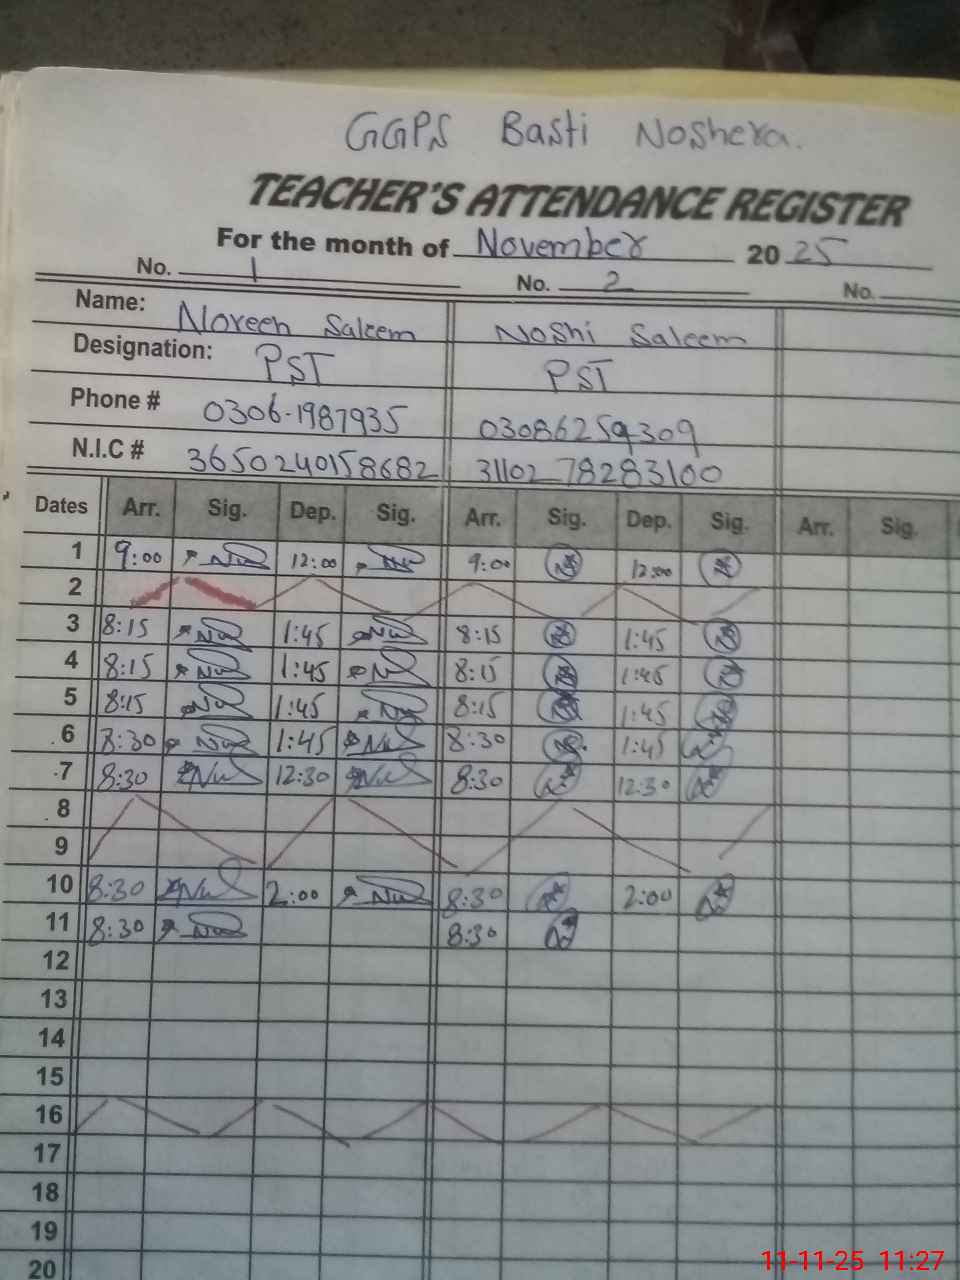 GGPS Basti Noshera.
TEACHER'S ATTENDANCE REGISTER
For the month of November 2025
No. 1 No. 2 No.
Name: Noreen Saleem Noshi Saleem
Designation: PST PST
Phone # 0306-1987935 03086259309
N.I.C # 3650240158682 3110278283100
Dates Arr. Sig. Dep. Sig. Arr. Sig. Dep. Sig. Arr. Sig.
1 9:00 12:00 9:00 12:00
2
3 8:15 1:45 8:15 1:45
4 8:15 1:45 8:15 1:45
5 8:15 1:45 8:15 1:45
6 8:30 1:45 8:30 1:45
7 8:30 12:30 8:30 12:30
8
9
10 8:30 2:00 8:30 2:00
11 8:30 8:30
12
13
14
15
16
17
18
19
20
11-11-25 11:27